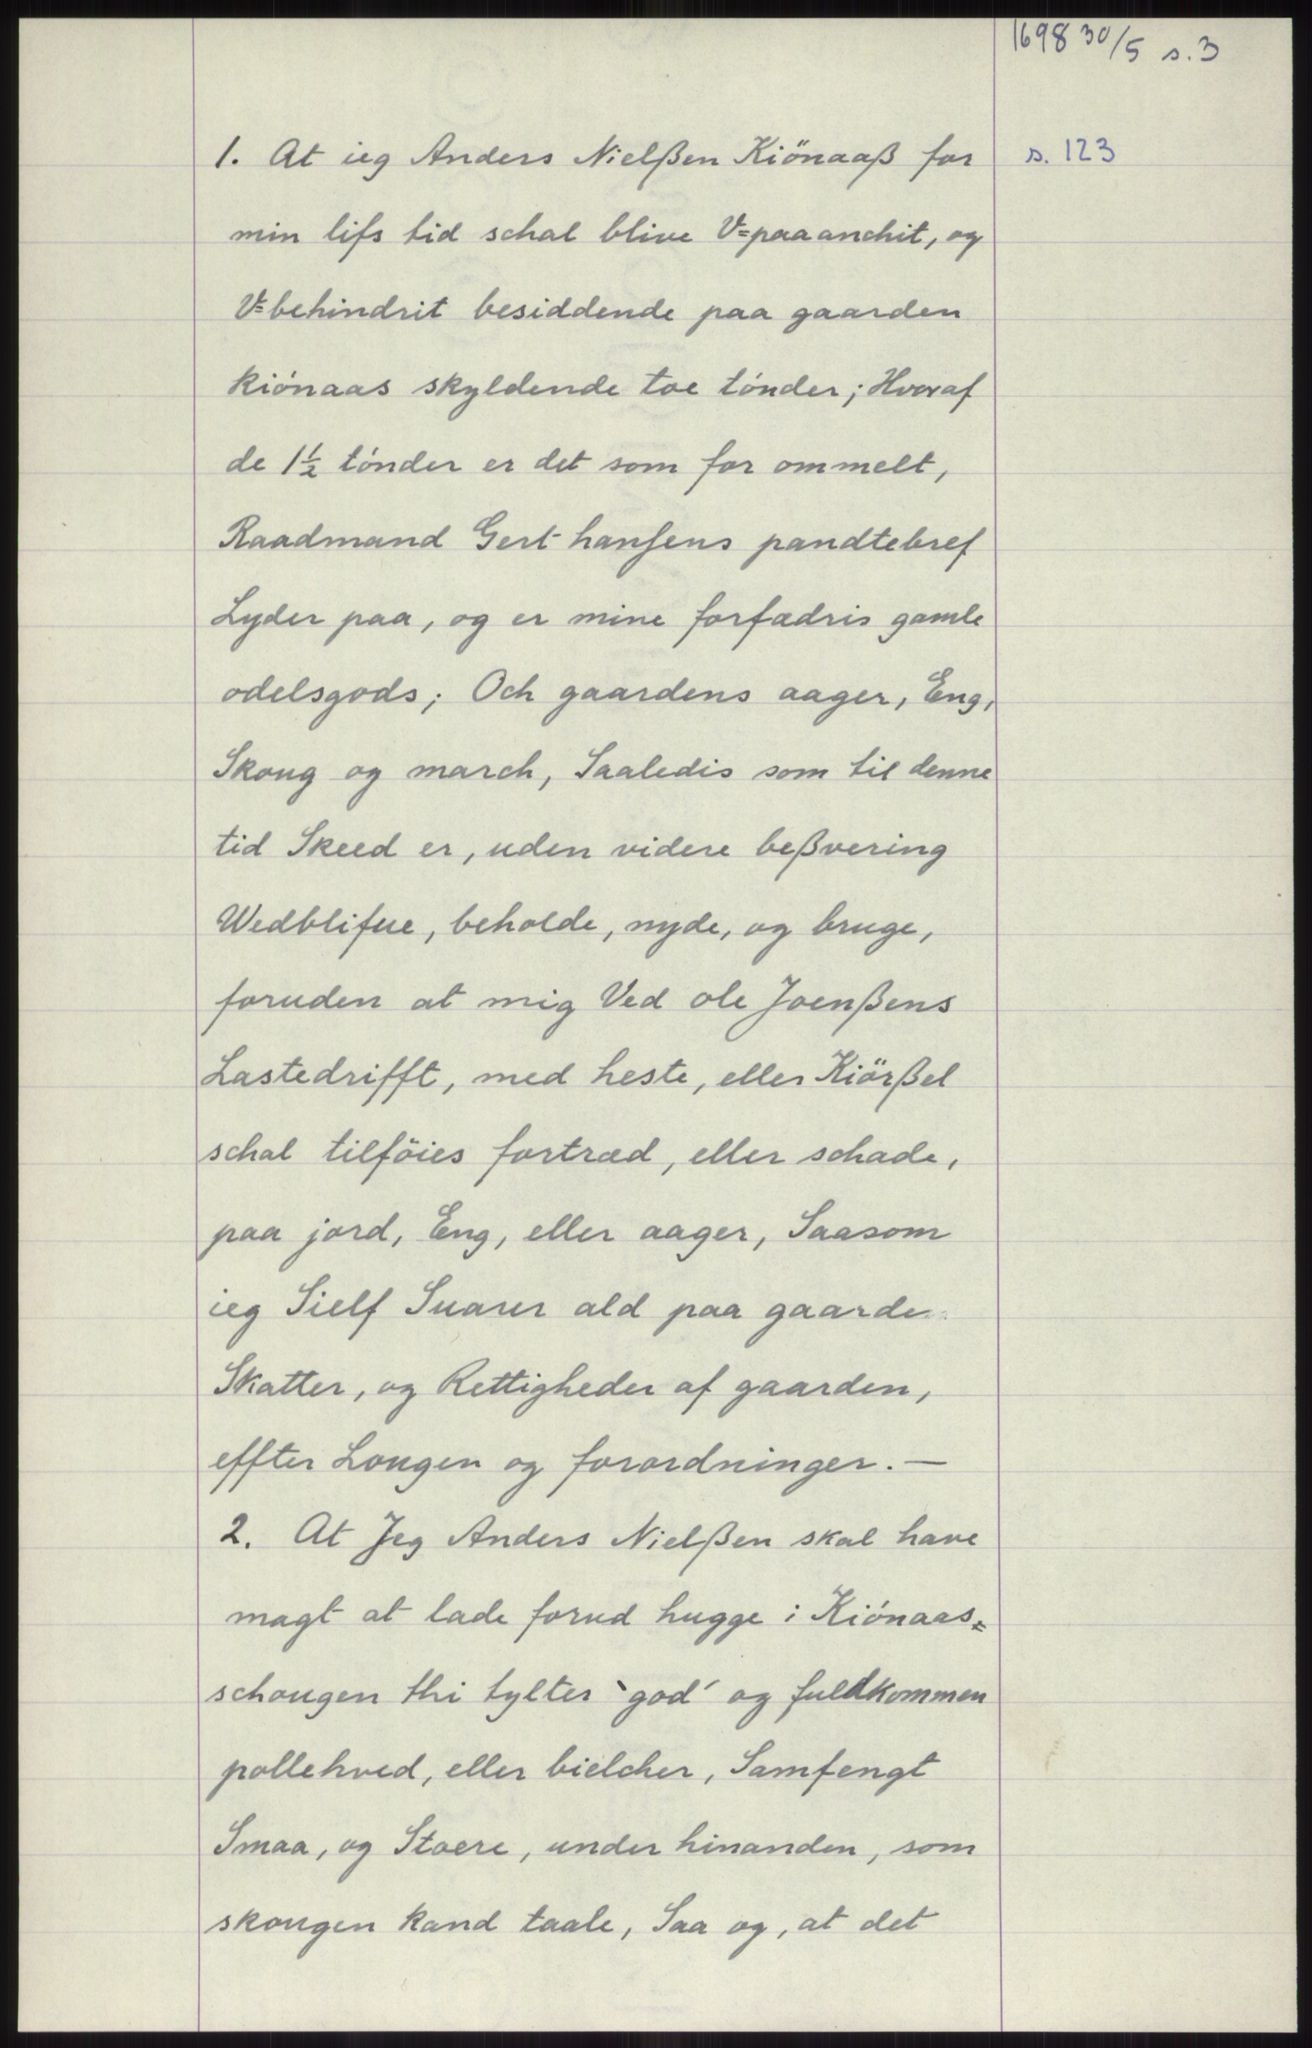 1698 30/5 s. 3
1. At ieg Anders Nielßen Kiönaaß for
s. 123
min lifs tid schal blive V=paaanchit, og
V=behindrit besiddende paa gaarden
kiónaas skyldende toe tónder; Hvoraf
de 1½ tónder er det som for ommelt,
Raadmand Gert hansens pandtebref
Lyder paa, og er mine forfædris gamle
odelsgods; Och gaardens aager, Eng,
Skoug og march, Saaledis som til denne
tid Skeed er, uden videre beßvering
Wedblifue, beholde, nyde, og bruge,
foruden at mig Ved ole Joenßens
Lastedrifft, med heste, eller Kiörßel
schal tilföies fortræd, eller schade,
paa jord, Eng, eller aager, Saasom
ieg Sielf Suarer ald paa gaarde
Skatter, og Rettigheder af gaarden,
effter Lougen og forordninger. —
2. At Jeg Anders Nielßen skal have
magt at lade forud hugge i Kiónaas=
schougen thi tylter `god´ og fuldkommen
pollehved, eller bielcher, Samfengt
Smaa, og Stoere, under hinanden, som
skougen kand taale, Saa og, at det